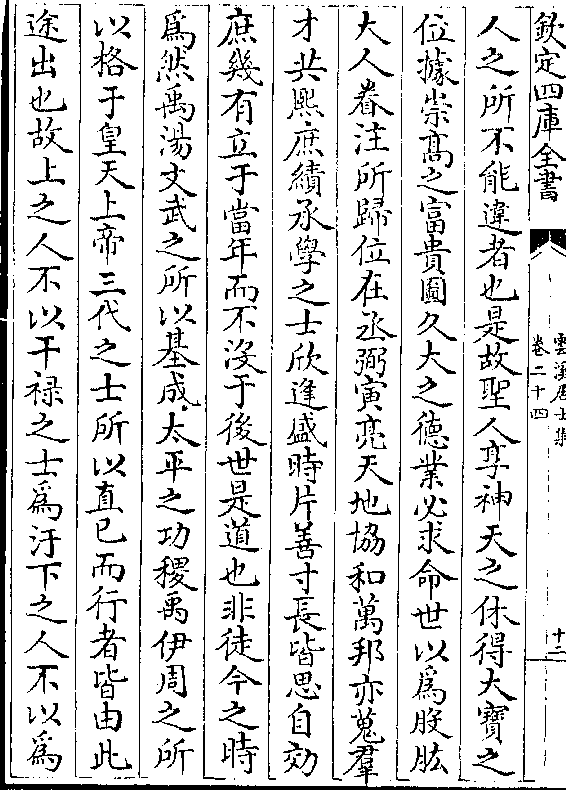 欽定四庫全書
雲溪居士集
卷二十四
十二
人之所不能違者也是故聖人享神天之休得大寶之
位據崇髙之富貴圖久大之德業必求命世以爲股肱
大人眷注所歸位在丞弼寅亮天地協和萬邦亦蒐羣
才共熙庶績承學之士欣逢盛時片善寸長皆思自効
庶幾有立于當年而不沒于後世是道也非徒今之時
爲然禹湯文武之所以基成太平之功稷禹伊周之所
以格于皇天上帝三代之士所以直已而行者皆由此
途出也故上之人不以干禄之士爲汙下之人不以爲